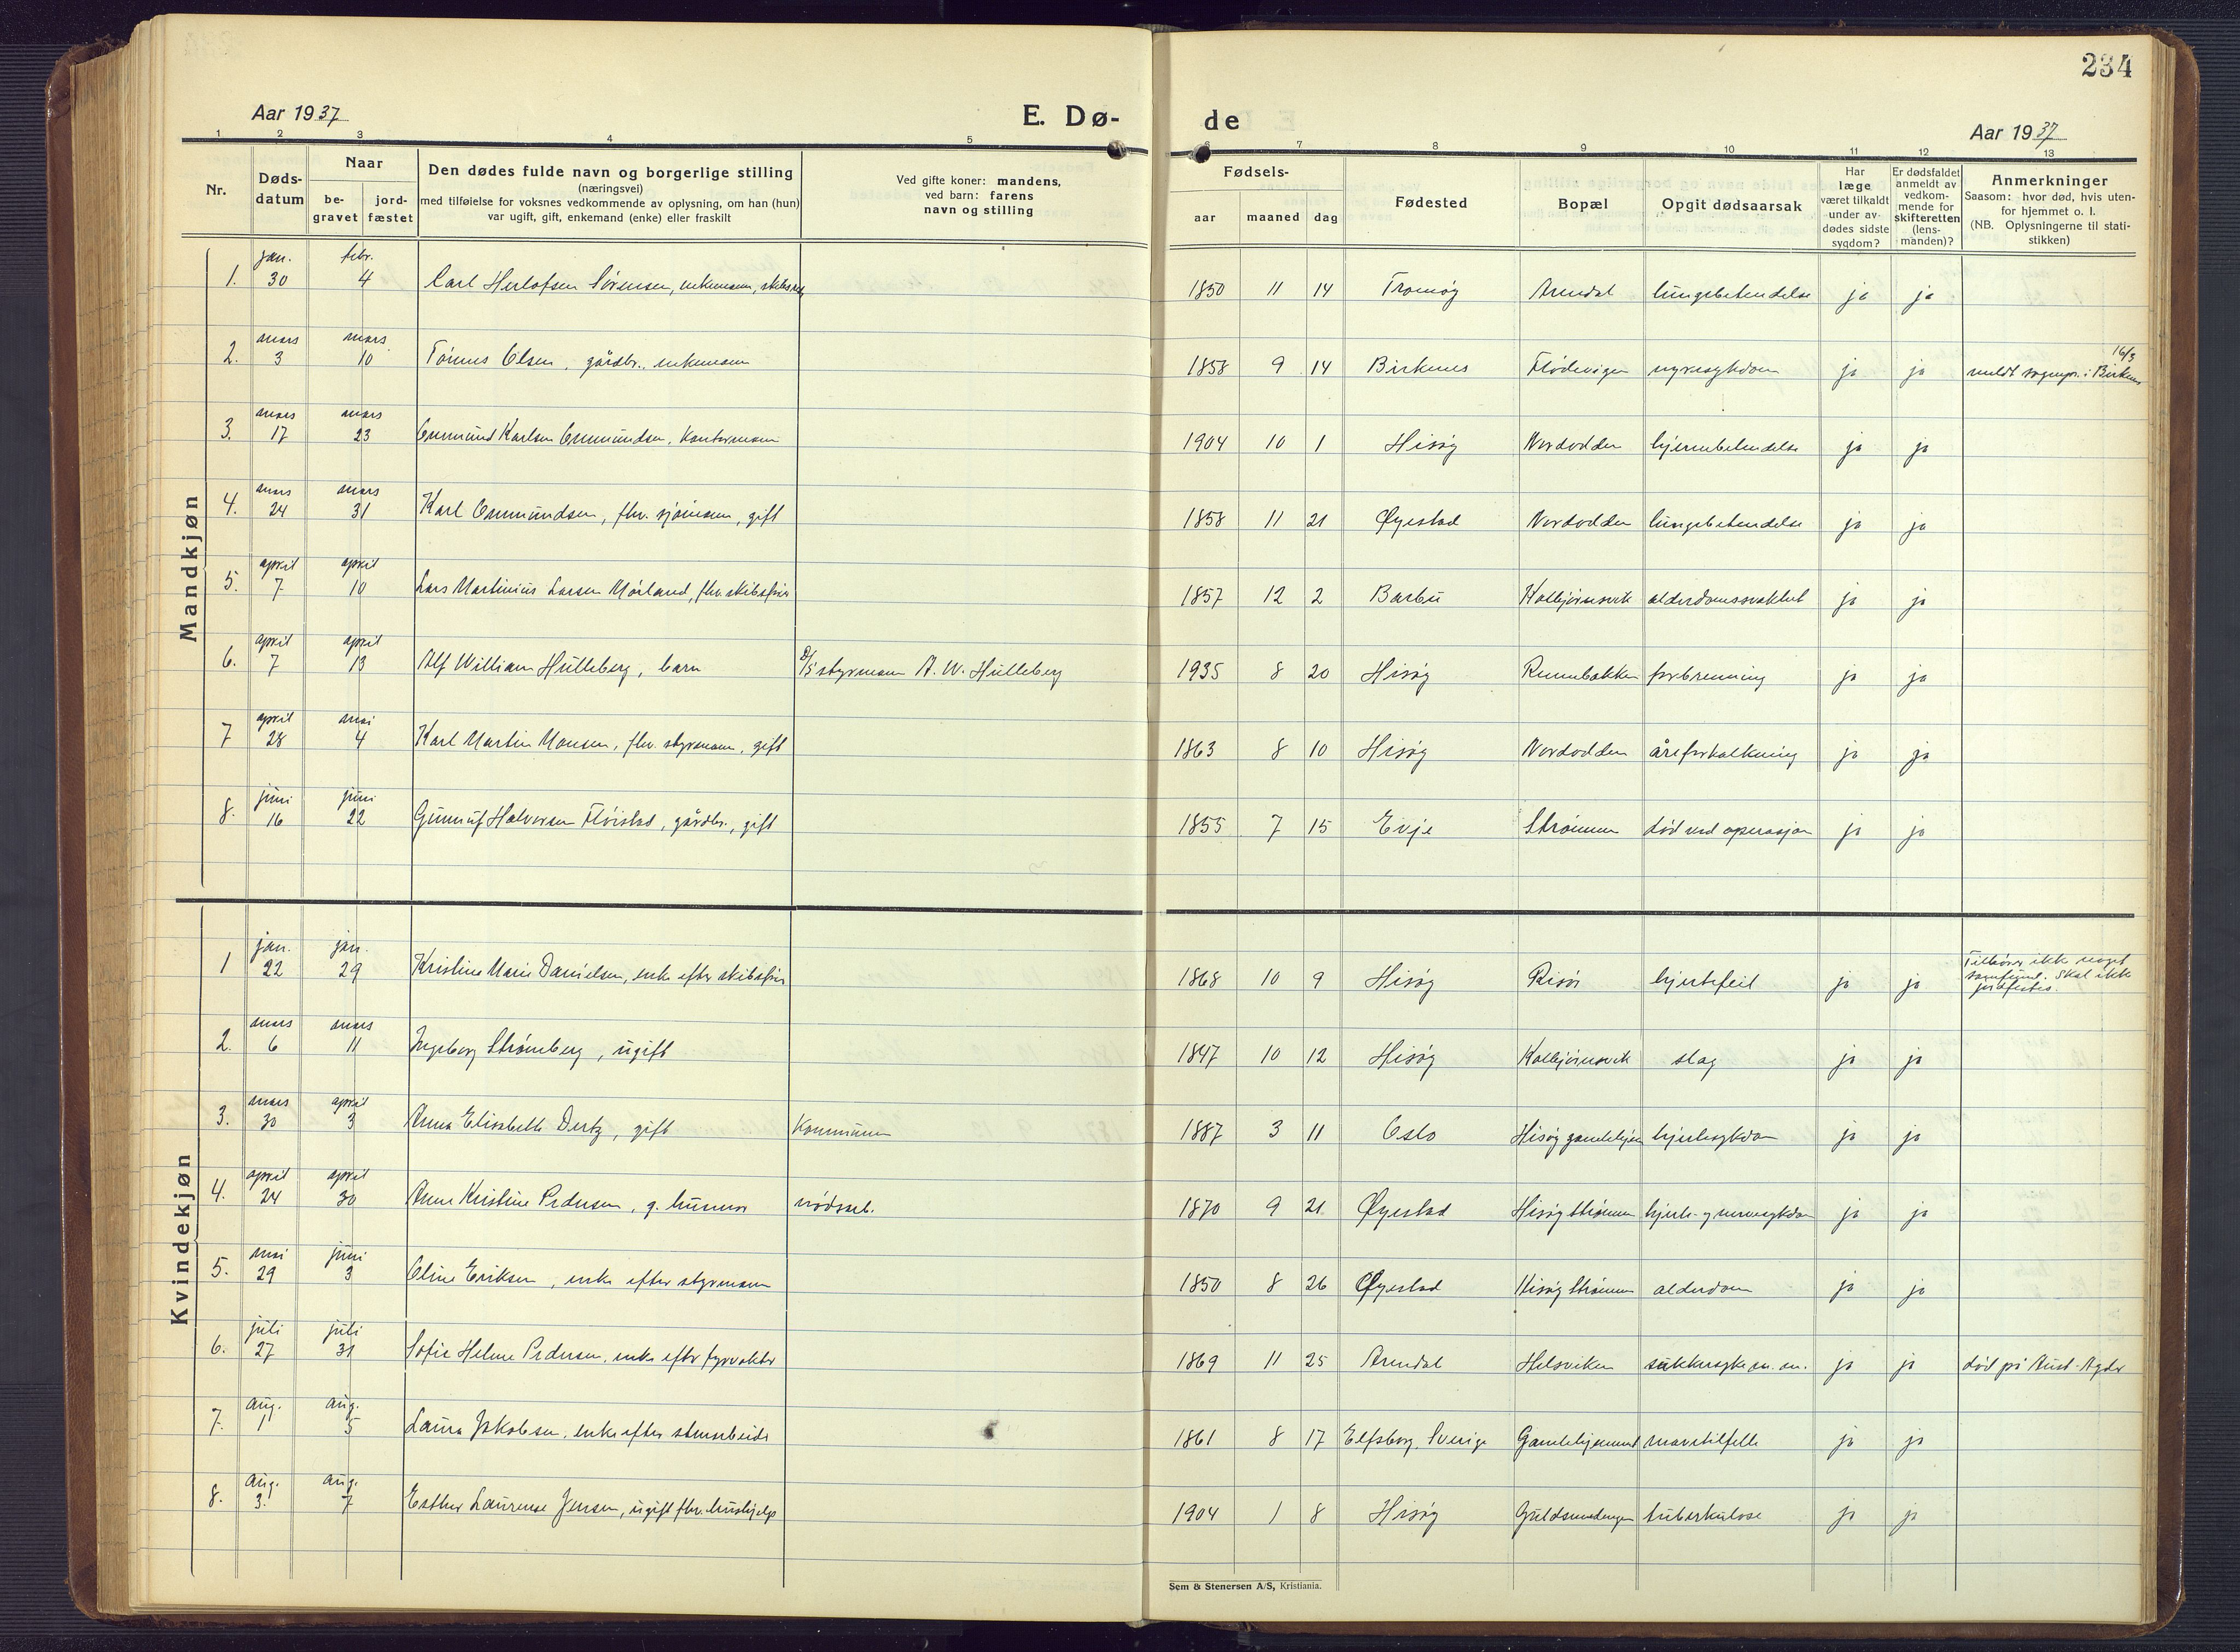 234
Aar 1937
E. Dø-
de
Aar 1937
1 2 3 4 5 6 7 8 9 10 11 12 13
Nr.
Døds-
datum
Naar
be-
gravet
jord-
fæstet
Den dødes fulde navn og borgerlige stilling
(næringsvei)
med tilføielse for voksnes vedkommende av oplysning, om han (hun)
var ugift, gift, enkemand (enke) eller fraskilt
Ved gifte koner: mandens,
ved barn: farens
navn og stilling
Fødsels-
aar maaned dag
Fødested
Bopæl
Opgit dødsaarsak
Har
læge
været tilkaldt
under av-
dødes sidste
sygdom?
Er dødsfaldet
anmeldt av
vedkom-
mende for
skifteretten
(lens-
manden)?
Anmerkninger
Saasom: hvor død, hvis uten-
for hjemmet o. l.
(NB. Oplysningerne til stati-
stikken)
Mandkjøn
jan. febr.
1. 30 4 Carl Herlofsen Sørensen, enkemann, 1850 11 14 Tromøy Arendal lungebetendelse ja ja
mars mars 16/3
2. 3 10 Tønnes Olsen, gårdbr., enkemann 1858 9 14 Birkenes Flødevigen nyresykdom ja ja meldt sognepr. i Birkenes
mars mars
3. 17 23 Gunmund Karlsen Gunmundsen, Kontormann 1904 10 1 Hisøy Nordodden hjernebetendelse ja ja
mars mars
4. 24 31 Karl Gunmundsen, fhv. sjømann, gift 1858 11 21 Øyestad Nordodden lungebetendelse ja ja
april april
5. 7 10 Lars Martinius Larsen Mørland, fhv. skibsfører 1857 12 2 Barbu Kolbjørnsvik alderdomssvakhet ja ja
april april
6. 7 13 Alf William Hulleberg, barn D/S styrmann A. W. Hulleberg 1935 8 20 Hisøy Rennebakken forbrenning ja ja
april mai
7 28 4 Karl Martin Monsen, fhv. styrmann, gift 1863 8 10 Hisøy Nordodden åreforkalkning ja ja
juni juni
8. 16 22 Gunnuf Halvorsen Fløistad, gårdbr., gift 1855 7 15 Evje Strømmen død ved operasjon ja ja
Kvindekjøn
jan. jan. Tilhører ikke noget
samfund. Skal ikke
jordfestes.
1 22 29 Kristine Marie Danielsen, enke efter skibsfører 1868 10 9 Hisøy Risør hjertefeil ja ja
mars mars
2. 6 11 Ingeborg Strømberg, ugift 1847 10 12 Hisøy Kolbjørnsvik slag ja ja
mars april
3. 30 3 Anna Elisabeth Dertz, gift Kommunen 1887 3 11 Oslo Hisøy gamlehjem hjertesykdom ja ja
april april
4. 24 30 Anne Kristine Pedersen, g. husmor nødsarb. 1870 9 21 Øyestad Hisøy Strømmen hjerte- og nervesykdom ja ja
mai juni
5. 29 3 Oline Eriksen, enke efter styrmann 1850 8 26 Øyestad Hisøy Strømmen alderdom ja ja
juli juli
6. 27 31 Sofie Helene Pedersen, enke efter fyrvokter 1869 11 25 Arendal Helsviken sukkersyke m. m. ja ja død på Aust-Agder
aug. aug.
7. 1 5 Laura Jakobsen, enke efter stenarbeider 1861 8 17 Elfsborg, Sverige Gamlehjemmet mavetilfelle ja ja
aug. aug.
8. 3. 7 Esther Laurense Jensen, ugift fhv. hushjelp 1904 1 8 Hisøy Guldsmedengen tuberkulose ja ja
Sem & Stenersen A/S, Kristiania.